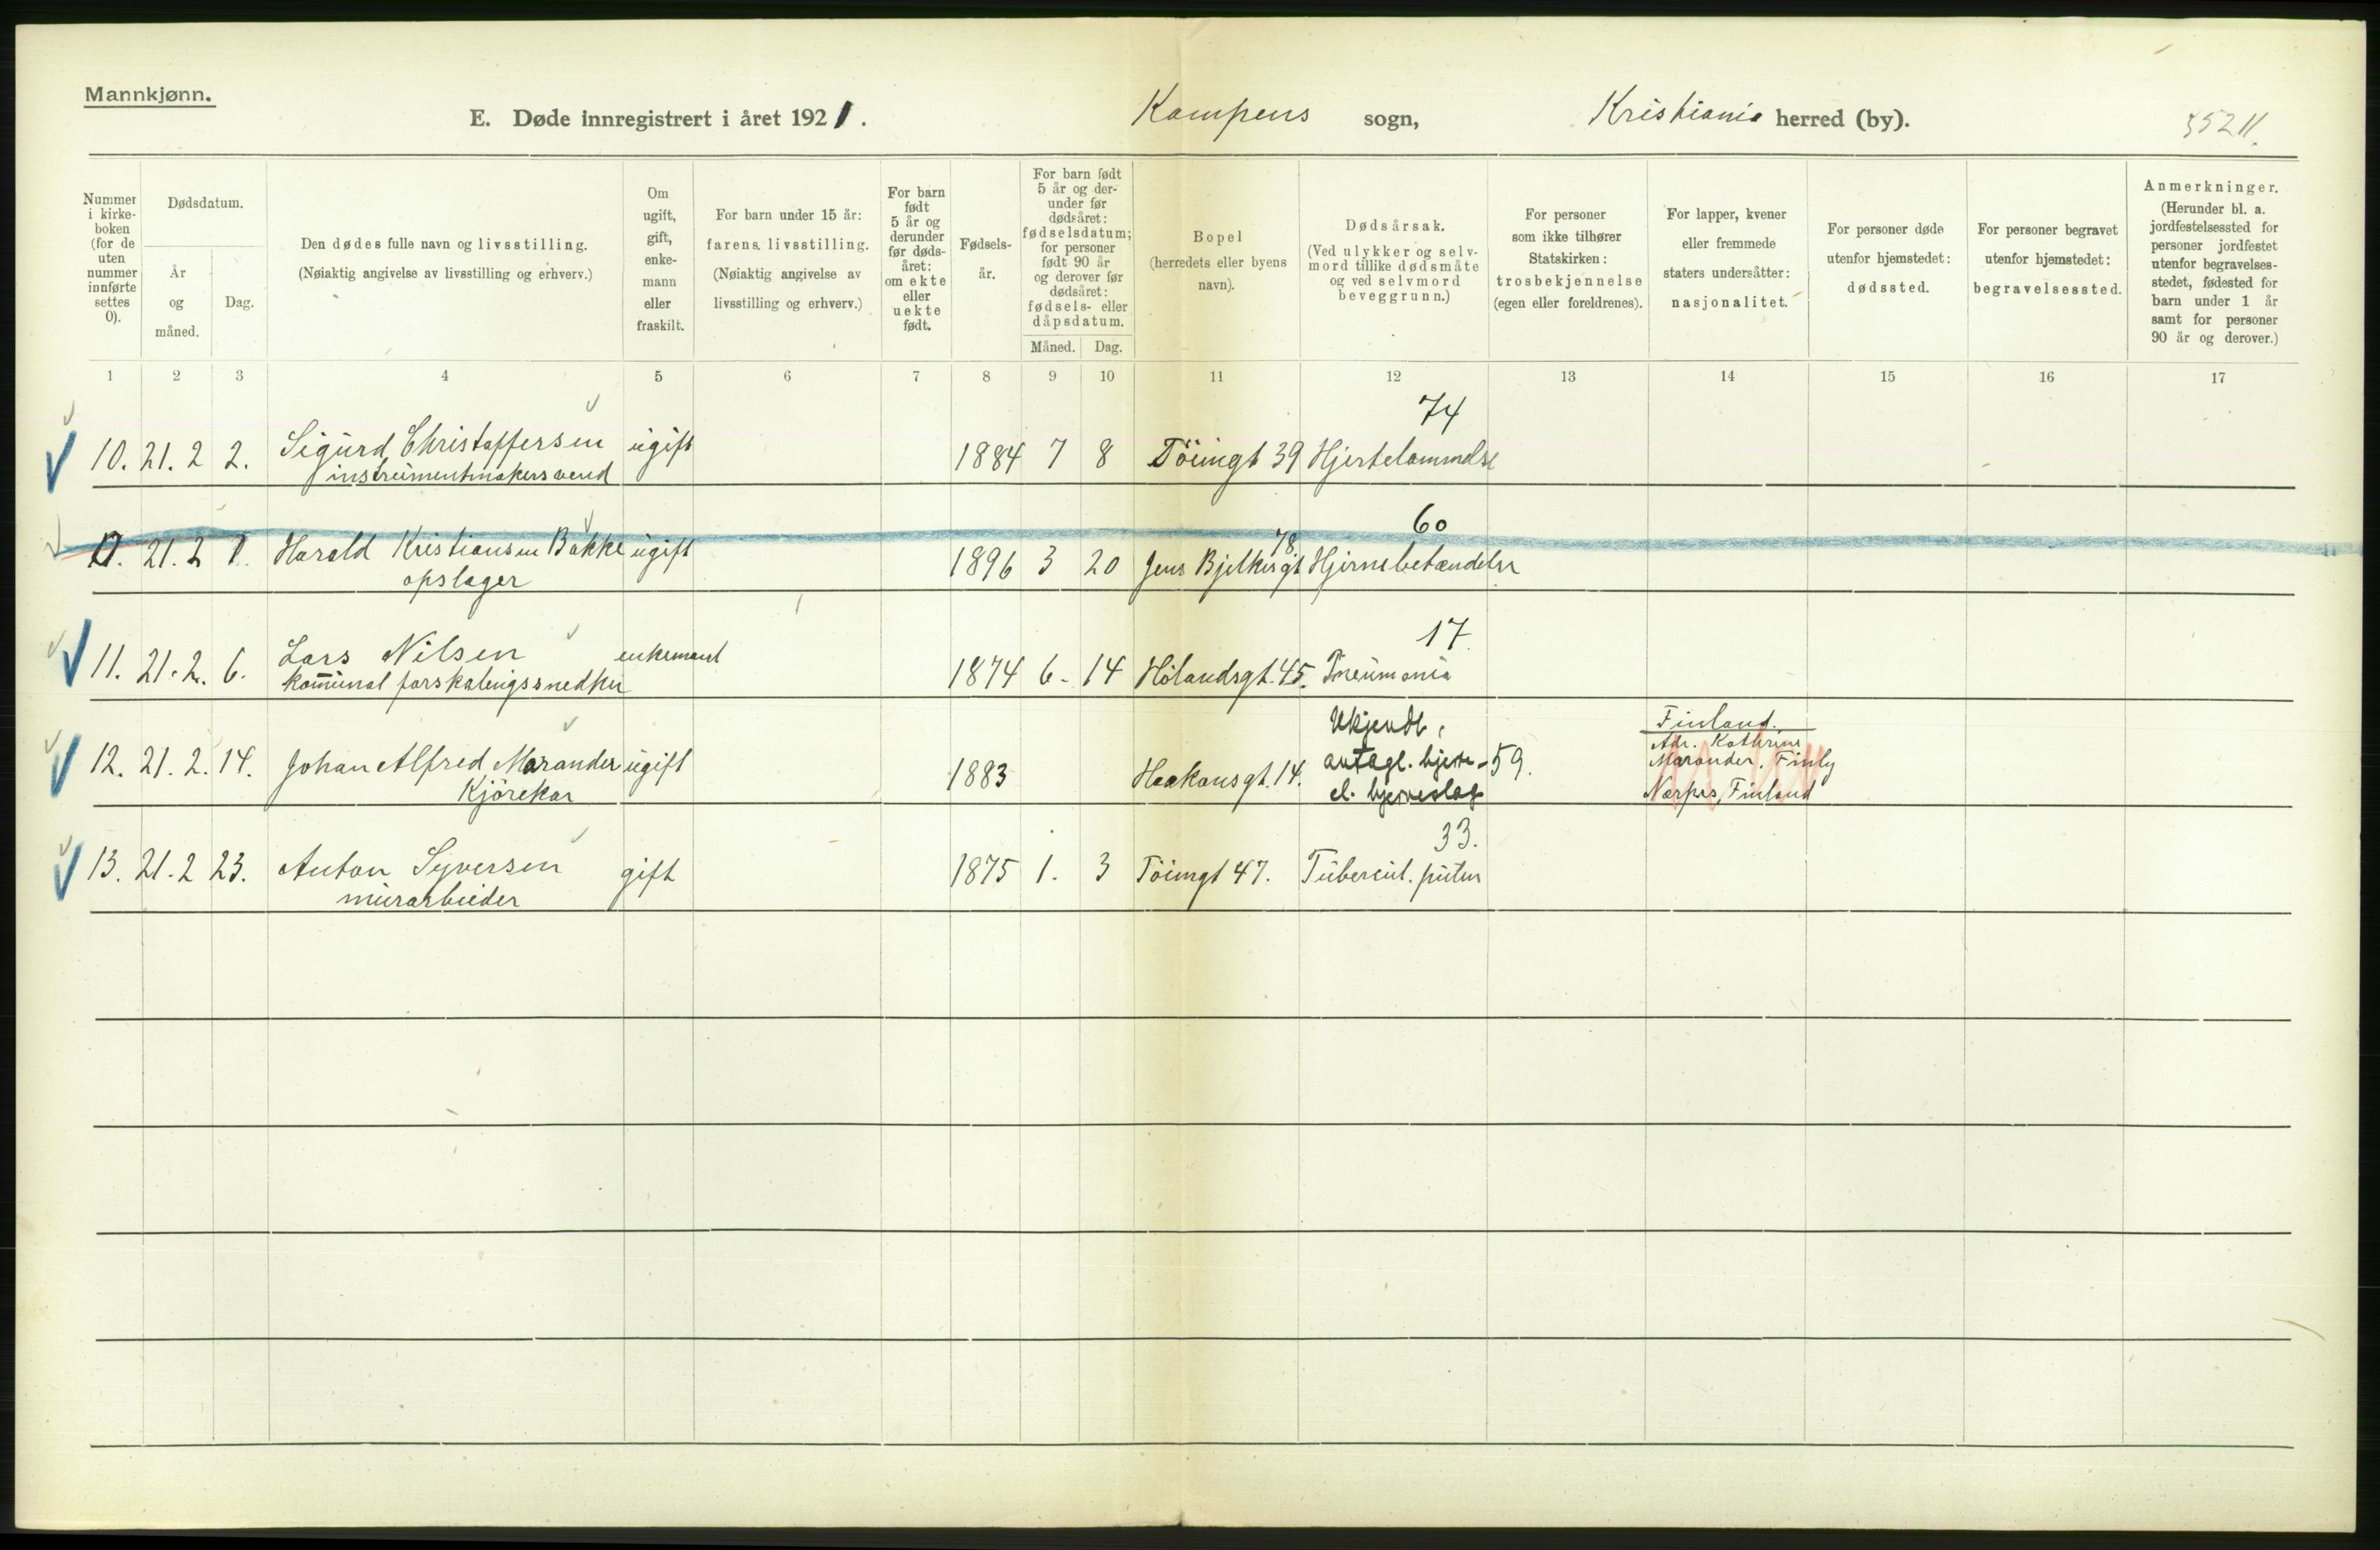 Mannkjønn.
E. Døde innregistrert i året 1921. Kampens sogn, Kristiania herred (by).
Nummer i kirkeboken (for de uten nummer innførte settes 0).
Dødsdatum.
År og måned.
Dag.
Den dødes fulle navn og livsstilling.
(Nøiaktig angivelse av livsstilling og erhverv.)
Om ugift, gift, enkemann eller fraskilt.
For barn under 15 år: farens livsstilling.
(Nøiaktig angivelse av livsstilling og erhverv.)
For barn født 5 år og derunder før dødsåret: om ekte eller uekte født.
Fødselsår.
For barn født 5 år og derunder før dødsåret: fødselsdatum; for personer født 90 år og derover før dødsåret: fødsels- eller dåpsdatum.
Måned. Dag.
Bopel
(herredets eller byens navn).
Dødsårsak.
(Ved ulykker og selvmord tillike dødsmåte og ved selvmord beveggrunn.)
For personer som ikke tilhører Statskirken: trosbekjennelse (egen eller foreldrenes).
For lapper, kvener eller fremmede staters undersåtter: nasjonalitet.
For personer døde utenfor hjemstedet: dødssted.
For personer begravet utenfor hjemstedet: begravelsessted.
Anmerkninger.
(Herunder bl. a. jordfestelsessted for personer jordfestet utenfor begravelsesstedet, fødested for barn under 1 år samt for personer 90 år og derover.)
1 2 3 4 5 6 7 8 9 10 11 12 13 14 15 16 17
74
10. 21. 2 2. Sigurd Christoffersen ugift 1884 7 8 Töiengt 39 Hjertelammelse
instrumentmakersvend
60
0. 21. 2 1. Harald Kristiansen Bakke ugift 1896 3 20 Jens Bjelkesgt 78. Hjernebetændelse
opslager
17
11. 21. 2. 6. Lars Nilsen enkemand 1874 6. 14 Hölandsgt. 45. Pneumonia
komunal forskalingssnedker
Ukjendt, Finland.
12. 21. 2. 14. Johan Alfred Marander ugift 1883 Haakonsgt. 14. antagl. hjerte- 59. Adr. Kathrine Marander, Finby
Kjörekar el. hjerneslag Närpes, Finland
33.
13. 21. 2 23. Anton Syversen gift 1875 1. 3 Töiengt 47. Tubercul. pulm
murarbeider